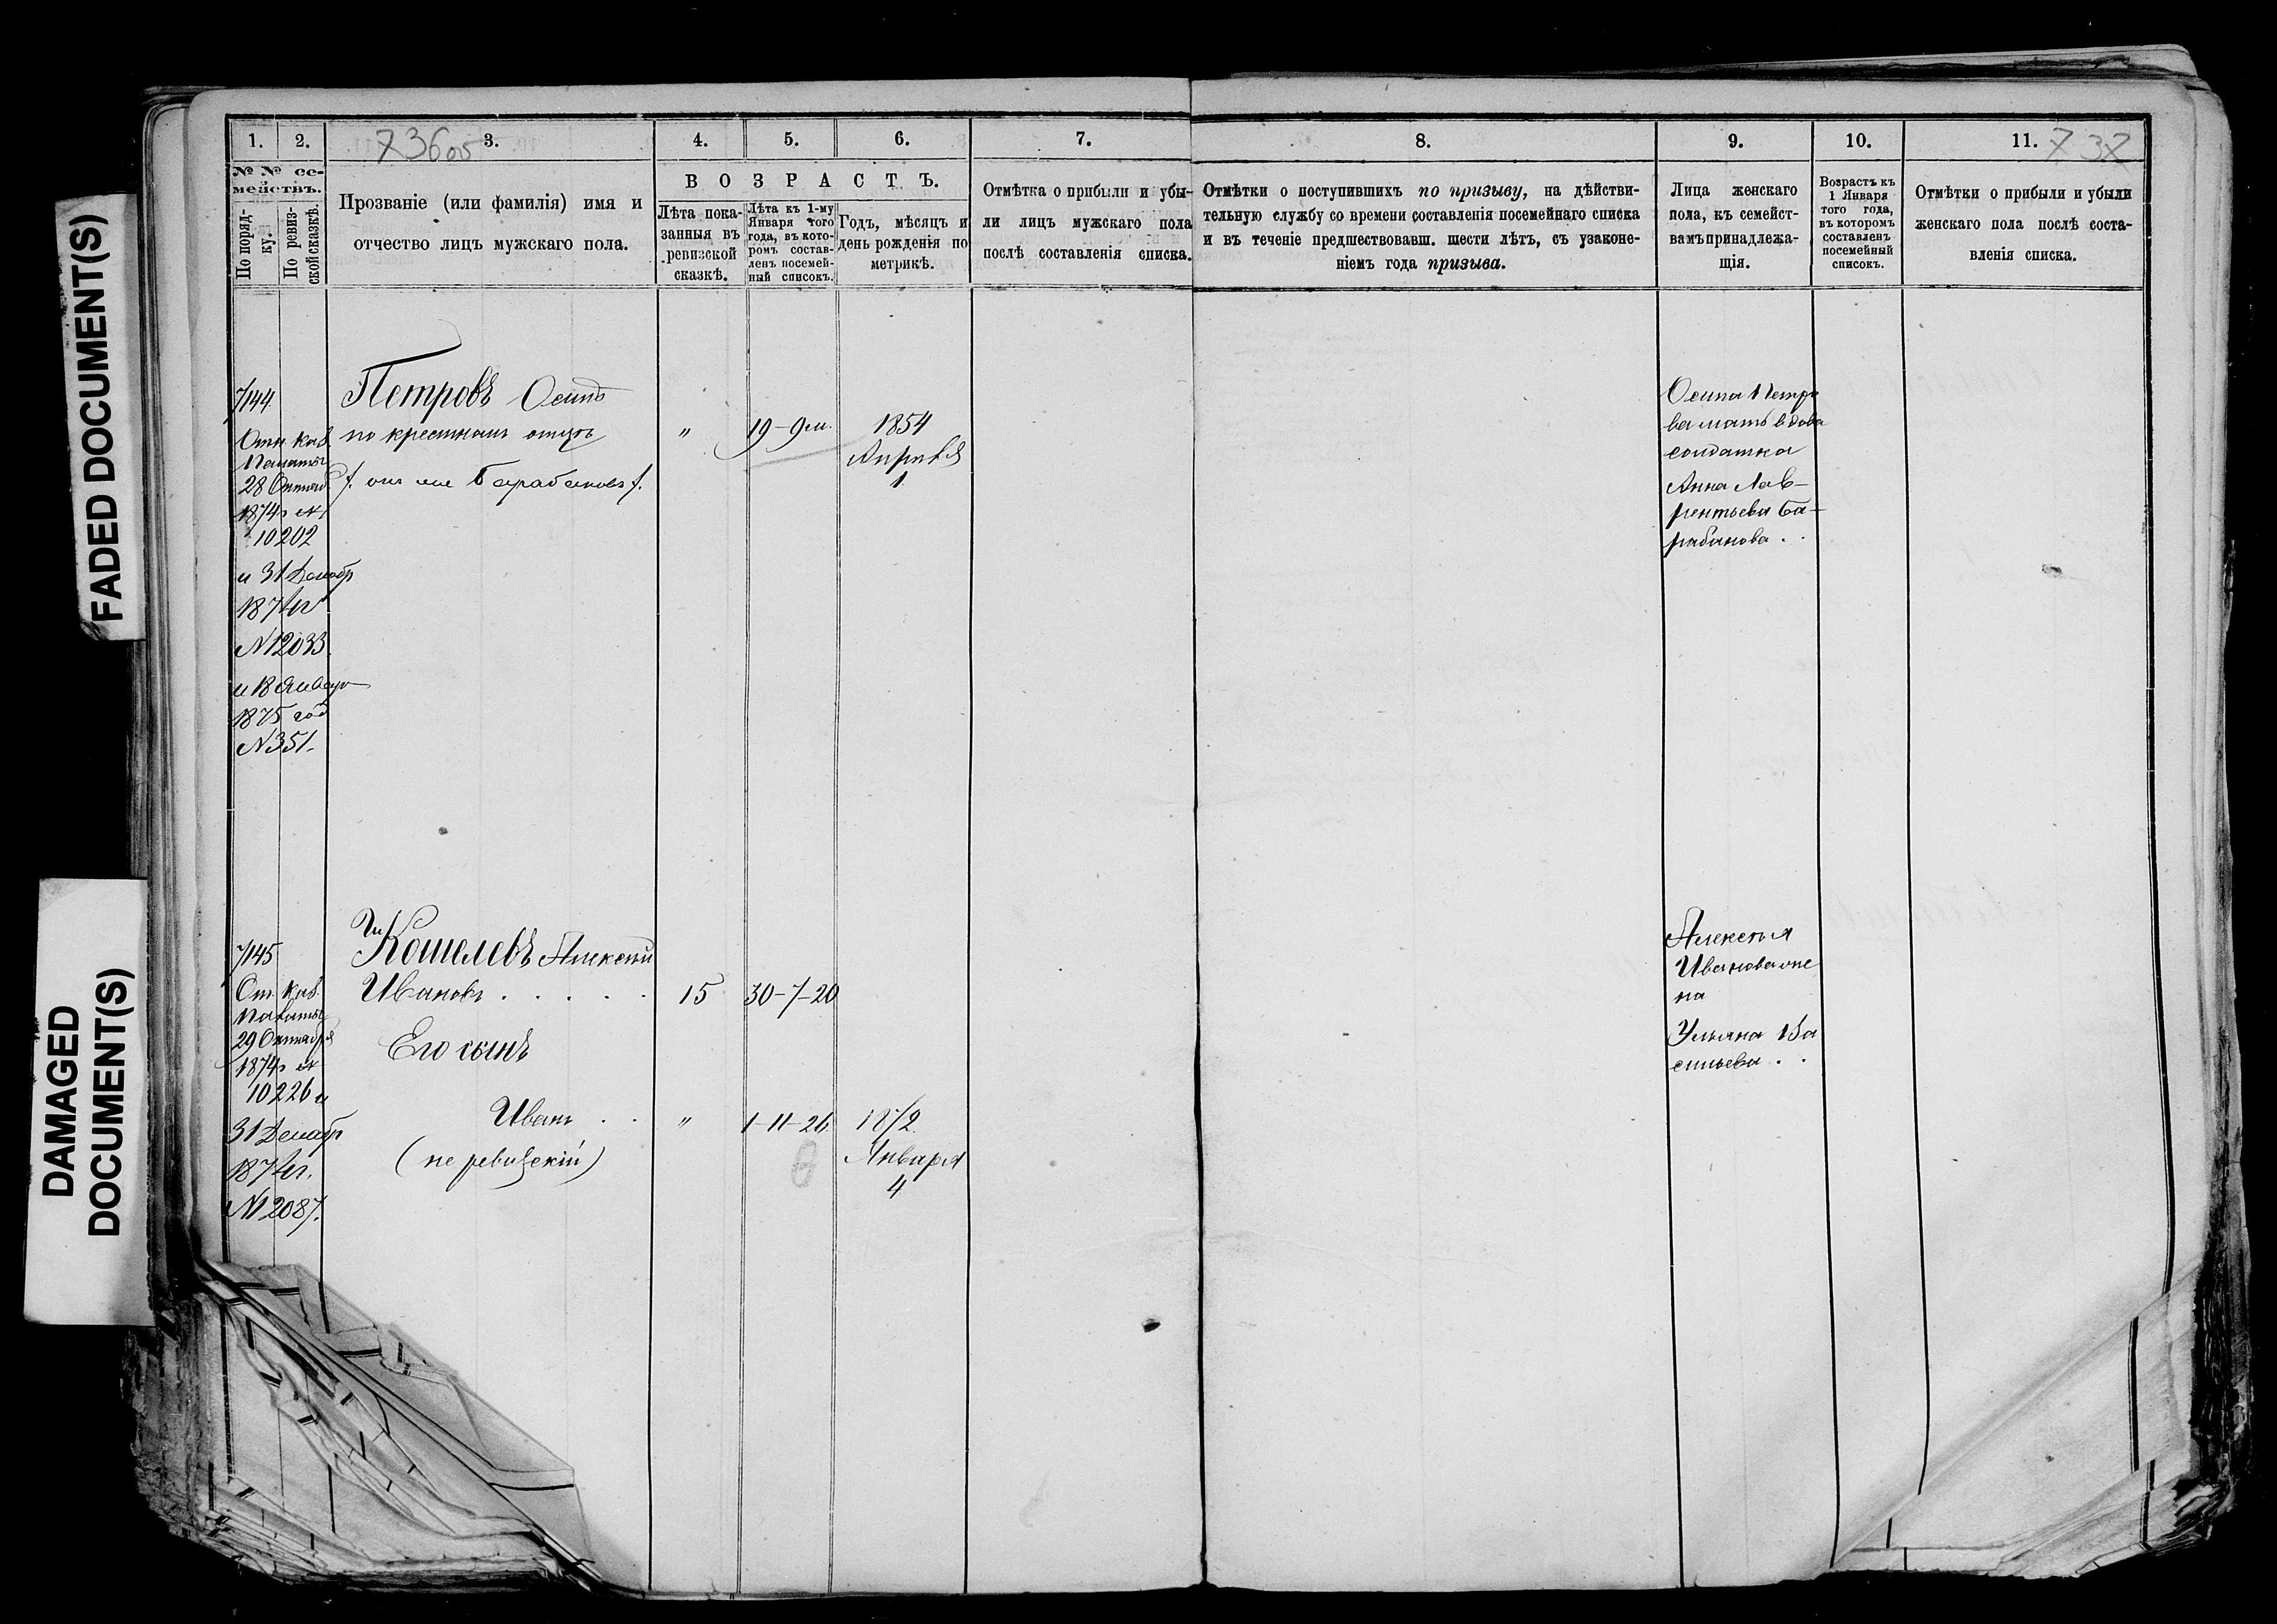 FADED DOCUMENT(S)
DAMAGED
DOCUMENT(S)
1.
2.
736 об
3.
4.
5.
6.
7.
8.
9.
10.
11.
737
№ № се-
мействъ.
По поряд-
ку.
По ревиз-
ской сказкѣ.
Прозваніе (или фамилія) имя и
отчество лицъ мужскаго пола.
В О З Р А С Т Ъ.
Лѣта пока-
занныя въ
ревизской
сказкѣ.
Лѣта къ 1-му
Января того
года, въ кото-
ромъ состав-
ленъ посемей-
ный списокъ.
Годъ, мѣсяцъ и
день рожденія по
метрикѣ.
Отмѣтка о прибыли и убы-
ли лицъ мужскаго пола
послѣ составленія списка.
Отмѣтки о поступившихъ по призыву, на дѣйстви-
тельную службу со времени составленія посемейнаго списка
и въ теченіе предшествовавш. шести лѣтъ, съ узаконе-
ніемъ года призыва.
Лица женскаго
пола, къ семейст-
вамъ принадлежа-
щія.
Возрастъ къ
1 Января
того года,
въ которомъ
составленъ
посемейный
списокъ.
Отмѣтки о прибыли и убыли
женскаго пола послѣ соста-
вленія списка.
7144
Каз.
Палаты
28 Октяб.
1874 г №
10202
и 31 Декабр
1874 г
№ 12033
и 18 Январ
1875 год
№ 351.
Петровъ Осипъ
по крестному отцу
Барабановъ
"
19-9 м.
1854
Апрѣля
1
Осипа Петро
ва мать вдова
солдатка
Анна Лав-
рентьева Ба-
рабанова . .
7145
От. Каз.
Палаты
29 Октября
1874 г №
10226 и
31 Декабр
1874 г.
№ 12087.
Кошелевъ Алексѣй
Ивановъ . . . . .
15
30-7-20
Его сынъ
Иванъ . .
"
1-11-26
1872
Января
4
(не ревизскій)
Алексѣя
Иванова же
на
Ульяна Ва
сильева . .